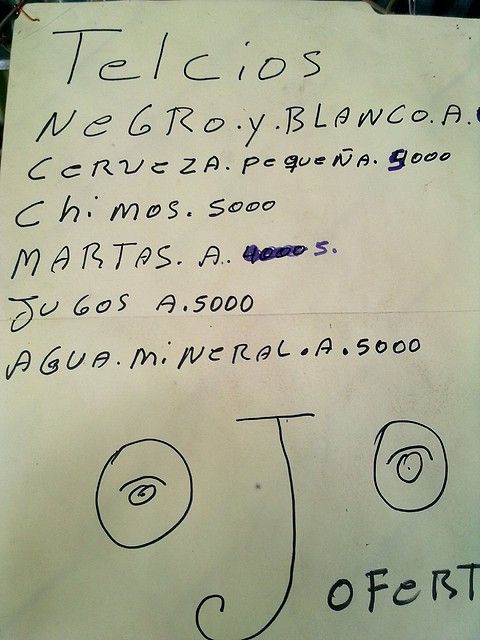 Telcios
NeGRo.y.BLANCO.A.
CeRVeZA.PeQueÑA.9000
Chimos.5000
MARTAS.A. 5.
JUGOS A.5000
AGUA.MiNeRAL.A.5000
OJO
OFeRT